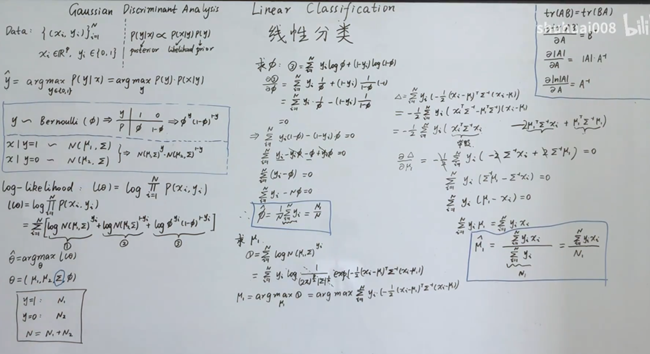 Gaussian Discriminant Analysis
Data: {(x_i, y_i)}_{i=1}^N
x_i ∈ ℝ^p, y_i ∈ {0,1}
P(y|x) ∝ P(x|y) P(y)
posterior likelihood prior
ŷ = arg max_{y∈{0,1}} P(y|x) = arg max_y P(y)·P(x|y)
y ~ Bernoulli(φ) ⇒ y 1 0 ⇒ φ^y (1-φ)^{1-y}
P φ 1-φ
x|y=1 ~ N(μ₁, Σ)
x|y=0 ~ N(μ₂, Σ)
} ⇒ N(μ₁,Σ)^y · N(μ₂,Σ)^{1-y}
log-likelihood: ℓ(θ) = log ∏_{i=1}^N P(x_i, y_i)
ℓ(θ) = log ∏_{i=1}^N P(x_i, y_i)
= Σ_{i=1}^N [log N(μ₁,Σ)^{y_i} + log N(μ₂,Σ)^{1-y_i} + log φ^{y_i}(1-φ)^{1-y_i}]
① ② ③
θ̂ = arg max_θ ℓ(θ)
θ = (μ₁, μ₂, Σ, φ)
y=1: N₁
y=0: N₂
N = N₁+N₂
Linear Classification
线性分类
求φ: ③ = Σ_{i=1}^N y_i log φ + (1-y_i) log(1-φ)
∂③/∂φ = Σ_{i=1}^N y_i 1/φ + (1-y_i) 1/(1-φ) (-1)
= Σ_{i=1}^N y_i 1/φ - (1-y_i) 1/(1-φ)
= 0
⇒ Σ_{i=1}^N y_i(1-φ) - (1-y_i)φ = 0
Σ_{i=1}^N (y_i - φ) = 0
Σ_{i=1}^N y_i - Nφ = 0
∴ φ̂ = 1/N Σ_{i=1}^N y_i = N₁/N
求 μ₁
① = Σ_{i=1}^N log N(μ₁,Σ)^{y_i}
= Σ_{i=1}^N y_i log 1/((2π)^{p/2}|Σ|^{1/2}) exp(-½(x_i-μ₁)^T Σ^{-1}(x_i-μ₁))
μ₁ = arg max_{μ₁} ① = arg max Σ_{i=1}^N y_i (-½(x_i-μ₁)^T Σ^{-1}(x_i-μ₁))
Δ = Σ_{i=1}^N y_i (-½(x_i-μ₁)^T Σ^{-1}(x_i-μ₁))
= -½ Σ_{i=1}^N y_i (x_i^T Σ^{-1} - μ₁^T Σ^{-1})(x_i-μ₁)
= -½ Σ_{i=1}^N y_i (x_i^T Σ^{-1} x_i - 2μ₁^T Σ^{-1} x_i + μ₁^T Σ^{-1} μ₁)
∂Δ/∂μ₁ = -½ Σ_{i=1}^N y_i (-2 Σ^{-1} x_i + 2 Σ^{-1} μ₁) = 0
Σ_{i=1}^N y_i (Σ^{-1} μ₁ - Σ^{-1} x_i) = 0
Σ_{i=1}^N y_i (μ₁ - x_i) = 0
Σ_{i=1}^N y_i μ₁ = Σ_{i=1}^N y_i x_i
μ̂₁ = Σ_{i=1}^N y_i x_i / Σ_{i=1}^N y_i = Σ_{i=1}^N y_i x_i / N₁
N₁
tr(AB) = tr(BA)
∂|A|/∂A = |A|·A^{-1}
∂ln|A|/∂A = A^{-1}
shuhuai008
bili